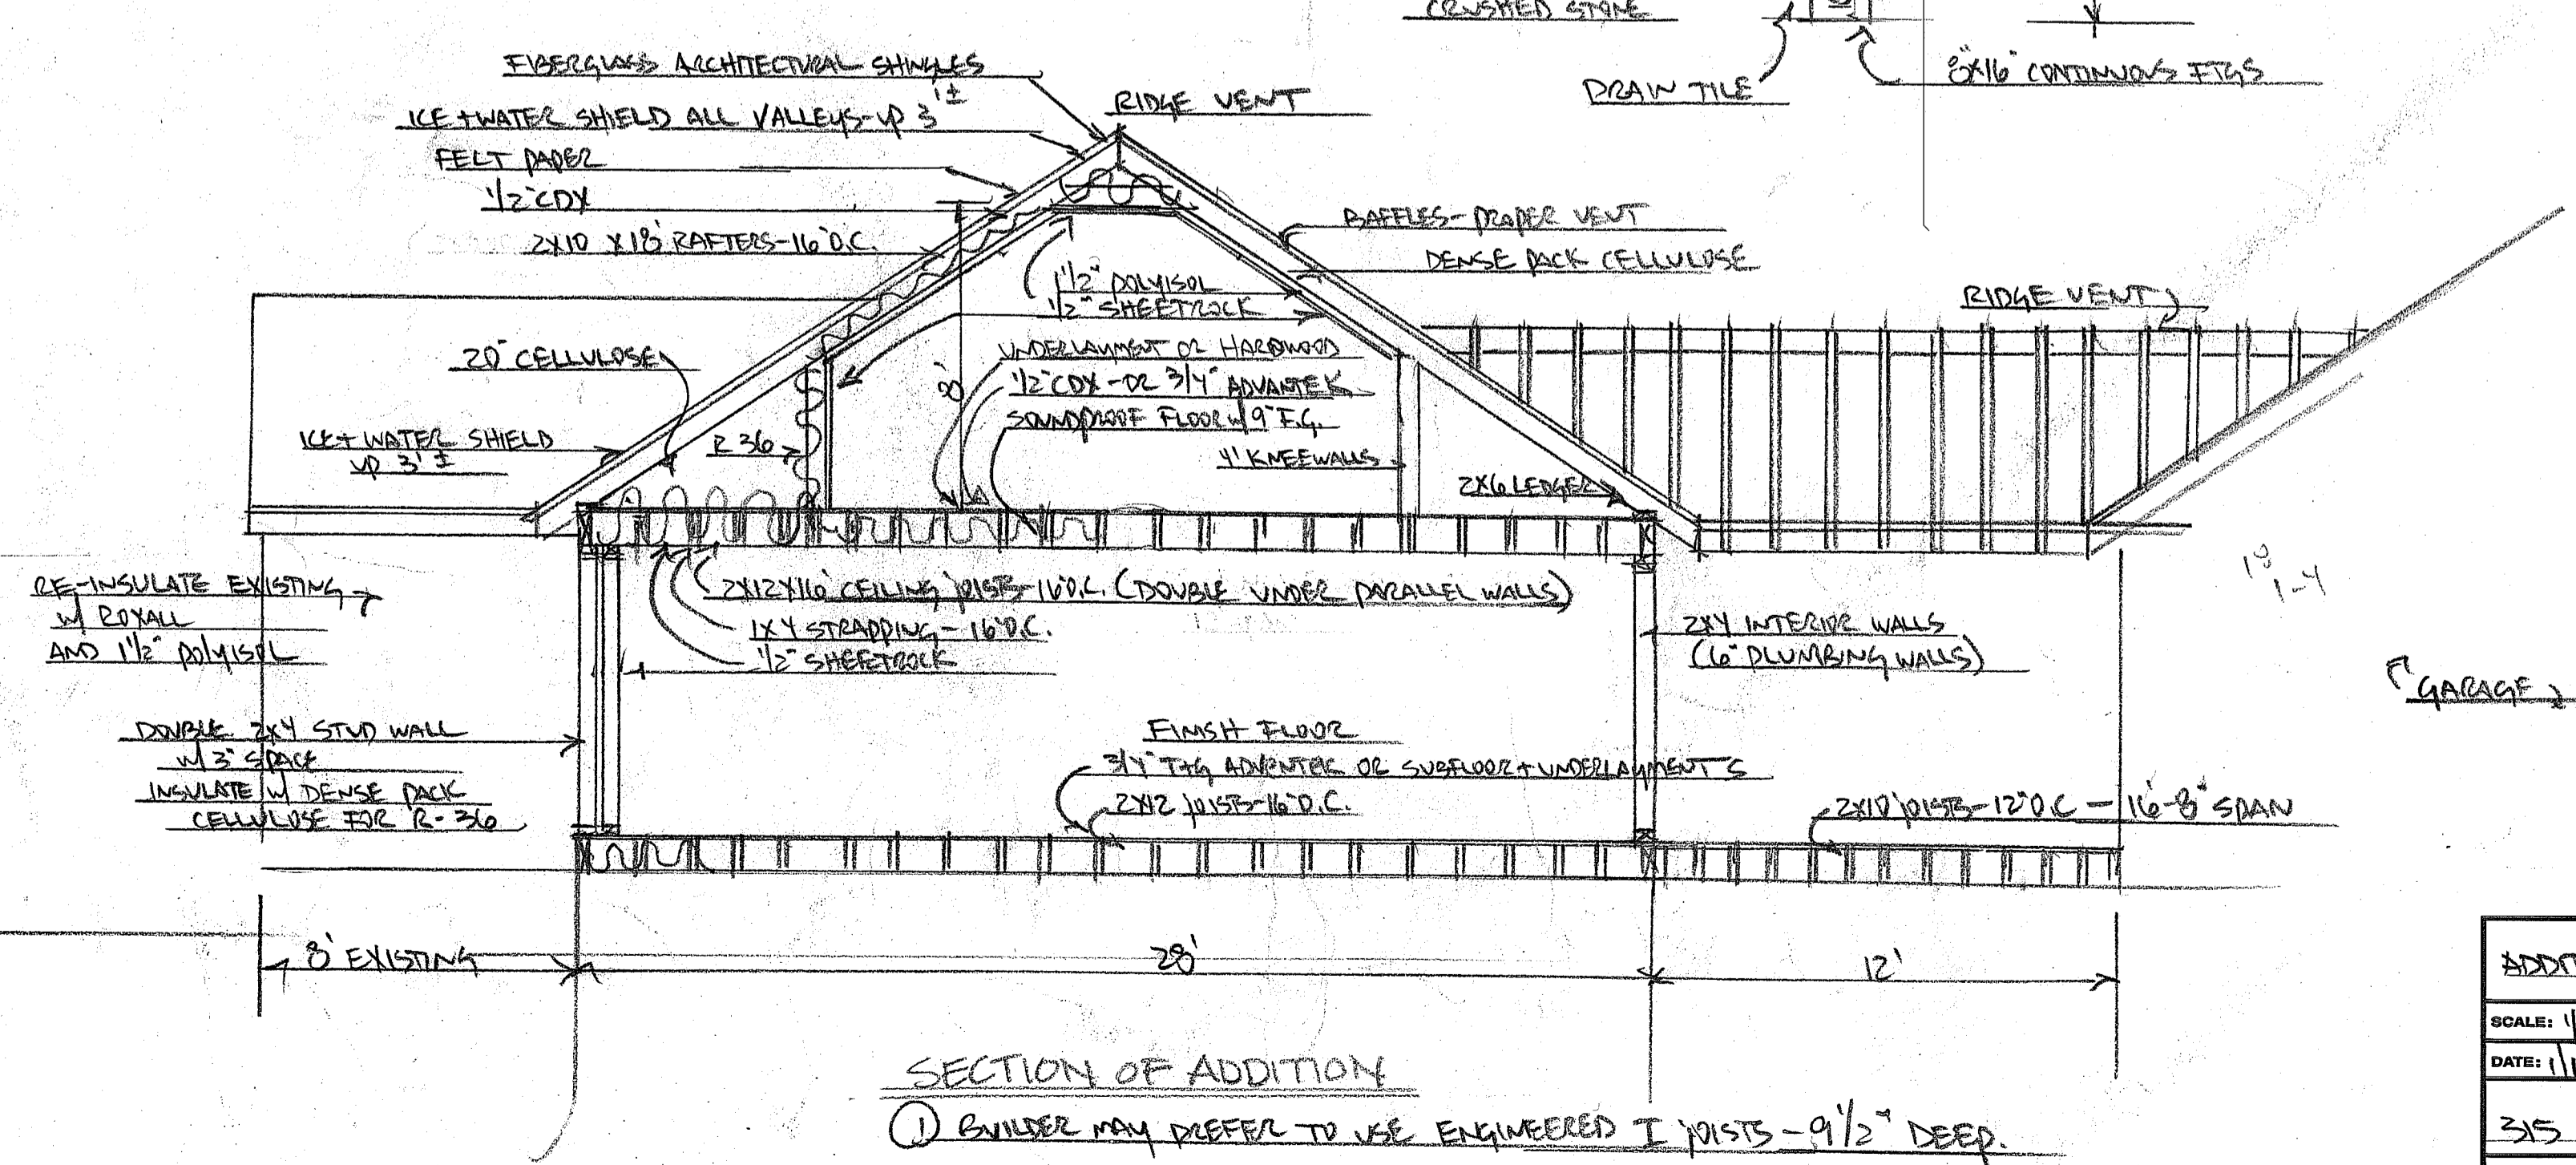 CRUSHED STONE
DRAIN TILE
8"X16" CONTINUOUS FTGS
FIBERGLASS ARCHITECTURAL SHINGLES
ICE + WATER SHIELD ALL VALLEYS - UP 3'±
FELT PAPER
1/2" CDX
2X10 X18' RAFTERS - 16" O.C.
RIDGE VENT
BAFFLES - PROPER VENT
DENSE PACK CELLULOSE
1 1/2" POLYISOL
1/2" SHEETROCK
RIDGE VENT
20" CELLULOSE
8'
UNDERLAYMENT OR HARDWOOD
1/2" CDX - OR 3/4" ADVANTEK
SOUNDPROOF FLOOR W/ 9" F.G.
ICE + WATER SHIELD
UP 3' ±
R 36
4' KNEEWALLS
2X6 LEDGER
RE-INSULATE EXISTING
W/ ROXALL
AND 1 1/2" POLYISOL
2X12X16' CEILING JOISTS - 16" O.C. (DOUBLE UNDER PARALLEL WALLS)
1X4 STRAPPING - 16" O.C.
1/2" SHEETROCK
2X4 INTERIOR WALLS
(6" PLUMBING WALLS)
GARAGE
DOUBLE 2X4 STUD WALL
W/ 3" SPACE
INSULATE W/ DENSE PACK
CELLULOSE FOR R-36
FINISH FLOOR
3/4" T+G ADVENTEK OR SUBFLOOR + UNDERLAYMENTS
2X12 JOISTS - 16" O.C.
2X10 JOISTS - 12" O.C. - 16'-8" SPAN
8' EXISTING
28'
12'
SECTION OF ADDITION
① BUILDER MAY PREFER TO USE ENGINEERED I JOISTS - 9 1/2" DEEP.
SCALE:
DATE:
315